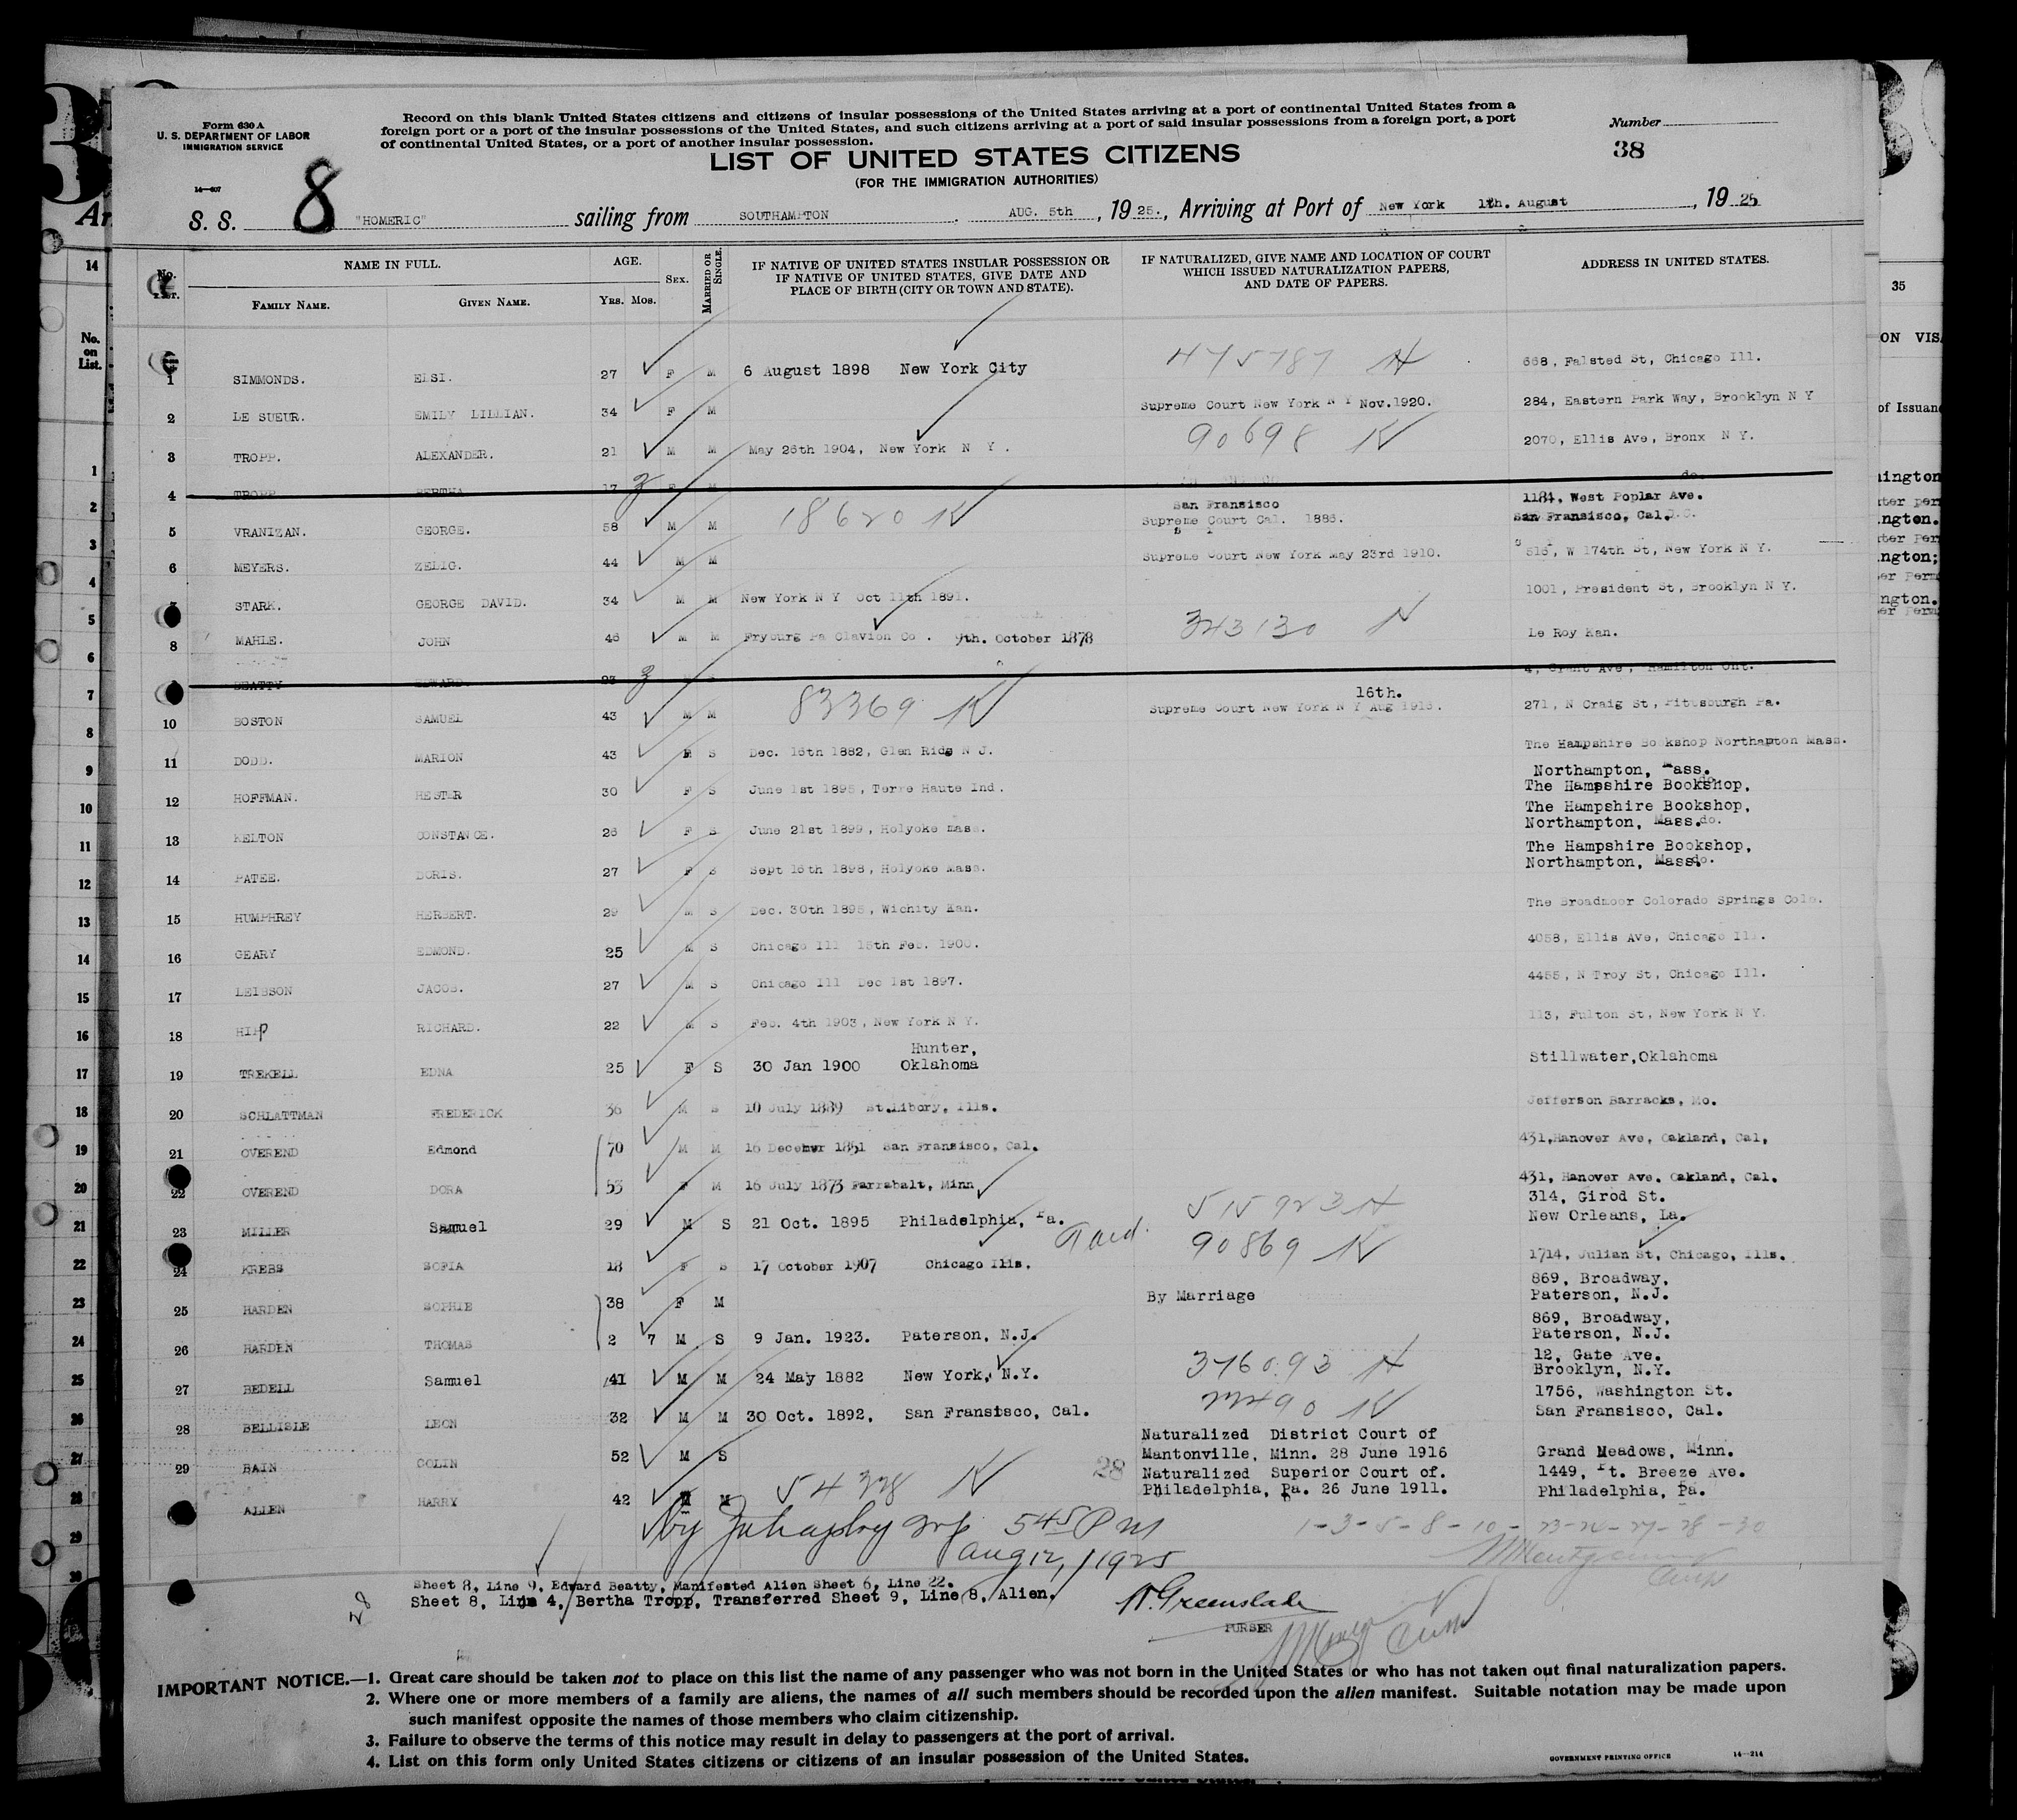 Form 630 A
U. S. DEPARTMENT OF LABOR
IMMIGRATION SERVICE
14—407
Record on this blank United States citizens and citizens of insular possessions of the United States arriving at a port of continental United States from a
foreign port or a port of the insular possessions of the United States, and such citizens arriving at a port of said insular possessions from a foreign port, a port
of continental United States, or a port of another insular possession.
Number
38
LIST OF UNITED STATES CITIZENS
(FOR THE IMMIGRATION AUTHORITIES)
8
S. S. "HOMERIC" sailing from SOUTHAMPTON AUG. 5th, 1925., Arriving at Port of New York August, 1925
No. LIST. NAME IN FULL. AGE. SEX. MARRIED OR SINGLE. IF NATIVE OF UNITED STATES INSULAR POSSESSION OR IF NATIVE OF UNITED STATES, GIVE DATE AND PLACE OF BIRTH (CITY OR TOWN AND STATE). IF NATURALIZED, GIVE NAME AND LOCATION OF COURT WHICH ISSUED NATURALIZATION PAPERS, AND DATE OF PAPERS. ADDRESS IN UNITED STATES.
FAMILY NAME. GIVEN NAME. YRS. MOS.
1 SIMMONDS. ELSI. 27 F M 6 August 1898 New York City 475787 668, Falsted St, Chicago Ill.
2 LE SUEUR. EMILY LILLIAN. 34 F M Supreme Court New York N Y Nov.1920. 284, Eastern Park Way, Brooklyn N Y
3 TROPP. ALEXANDER. 21 M M May 26th 1904, New York N Y . 90698 K 2070, Ellis Ave, Bronx N Y.
4 TROPP BERTHA 17 F M do.
5 VRANIZAN. GEORGE. 58 M M 18620 K San Fransisco Supreme Court Cal. 1886. 1184, West Poplar Ave. San Fransisco, Cal.
6 MEYERS. ZELIG. 44 M M Supreme Court New York May 23rd 1910. 516, W 174th St, New York N Y.
7 STARK. GEORGE DAVID. 34 M M New York N Y Oct 11th 1891. 1001, President St, Brooklyn N Y.
8 MAHLE. JOHN 46 M M Fryburg Pa Clavion Co . 9th. October 1878 343130 Le Roy Kan.
BEATTY EDWARD 23 4, Grant Ave, Hamilton Ont.
10 BOSTON SAMUEL 43 M M 83369 K 16th. Supreme Court New York N Y Aug 271, N Craig St, Pittsburgh Pa.
11 DODD. MARION 43 F S Dec. 16th 1882, Glen Ridg N J. The Hampshire Bookshop Northampton Mass.
12 HOFFMAN. HESTER 30 F S June 1st 1895, Terre Haute Ind. Northampton, Mass. The Hampshire Bookshop,
13 KELTON CONSTANCE. 26 F S June 21st 1899, Holyoke mass. The Hampshire Bookshop, Northampton, Mass. do.
14 PATEE. DORIS. 27 F S Sept 16th 1898, Holyoke Mass. The Hampshire Bookshop, Northampton, Mass. do.
15 HUMPHREY HERBERT. 29 M S Dec. 30th 1895, Wichity Kan. The Broadmoor Colorado Springs Colo.
16 GEARY EDMOND. 25 M S Chicago Ill 15th Feb. 1900. 4058, Ellis Ave, Chicago Ill.
17 LEIBSON JACOB. 27 M S Chicago Ill Dec 1st 1897. 4455, N Troy St, Chicago Ill.
18 HIPP RICHARD. 22 M S Feb. 4th 1903, New York N Y. 113, Fulton St, New York N Y.
19 TREKELL EDNA 25 F S 30 Jan 1900 Hunter, Oklahoma Stillwater,Oklahoma
20 SCHLATTMAN FREDERICK 36 M S 10 July 1889 St.Libory, Ills. Jefferson Barracks, Mo.
21 OVEREND Edmond 70 M M 16 Decembr 1851 San Fransisco, Cal. 431,Hanover Ave, Oakland, Cal,
22 OVEREND DORA 53 F M 16 July 1873 Farrabalt, Minn 431, Hanover Ave. Oakland, Cal.
23 MILLER Samuel 29 M S 21 Oct. 1895 Philadelphia, Pa. 515923 314, Girod St. New Orleans, La.
24 KREBS SOFIA 18 F S 17 October 1907 Chicago Ills. 90869 K 1714, Julian St, Chicago, Ills.
25 HARDEN SOPHIE 38 F M By Marriage 869, Broadway, Paterson, N.J.
26 HARDEN THOMAS 2 7 M S 9 Jan. 1923. Paterson, N.J. 869, Broadway, Paterson, N.J.
27 BEDELL Samuel 41 M M 24 May 1882 New York, N.Y. 376093 12, Gate Ave. Brooklyn, N.Y.
28 BELLISLE LEON 32 M M 30 Oct. 1892, San Fransisco, Cal. 22490 K 1756, Washington St. San Fransisco, Cal.
29 BAIN COLIN 52 M S Naturalized District Court of Mantonville, Minn. 28 June 1916 Grand Meadows, Minn.
ALLEN HARRY 42 M M 54328 K 28 Naturalized Superior Court of. Philadelphia, Pa. 26 June 1911. 1449, Pt. Breeze Ave. Philadelphia, Pa.
545 P M
Aug 12, 1925
1-3-5-8-10-23-24-27-28-30
Sheet 8, Line 9, Edward Beatty, Manifested Alien Sheet 6, Line 22.
Sheet 8, Line 4, Bertha Tropp, Transferred Sheet 9, Line 8, Alien.
28
Greenslade
PURSER
IMPORTANT NOTICE.—1. Great care should be taken not to place on this list the name of any passenger who was not born in the United States or who has not taken out final naturalization papers.
2. Where one or more members of a family are aliens, the names of all such members should be recorded upon the alien manifest. Suitable notation may be made upon
such manifest opposite the names of those members who claim citizenship.
3. Failure to observe the terms of this notice may result in delay to passengers at the port of arrival.
4. List on this form only United States citizens or citizens of an insular possession of the United States.
GOVERNMENT PRINTING OFFICE 14—214